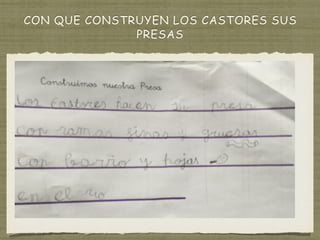 CON QUE CONSTRUYEN LOS CASTORES SUS
PRESAS
Construimos nuestra Presa
Los castores hacen su presa
con ramas finas y gruesas
con barro y hojas
en el rio